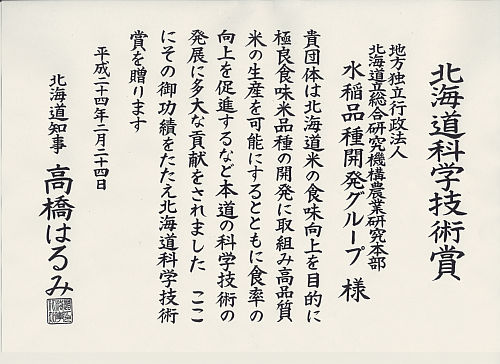 北海道科学技術賞
地方独立行政法人
北海道立総合研究機構農業研究本部
水稲品種開発グループ 様
貴団体は北海道米の食味向上を目的に
極良食味米品種の開発に取組み高品質
米の生産を可能にするとともに食率の
向上を促進するなど本道の科学技術の
発展に多大な貢献をされました ここ
にその御功績をたたえ北海道科学技術
賞を贈ります
平成二十四年二月二十四日
北海道知事 高橋はるみ